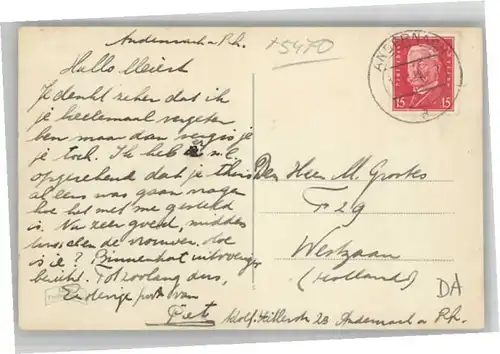 Andernach a Rh.
+5470
Hallo Meiert
Je denkt zeker dat ik
je heelemaal vergeten
ben maar dan vergis je
je toch. Ik heb n.l.
opgerekend dat je thuis
al eens was gaan vragen
hoe het met me gesteld
is. Nu zeer goed, midden
tusschen de vrouwen, hoe
is je? Binnenkort uitvoeriger
bericht. Tot zoolang dus,
Eenderige post van
Piet
Adolf Hitlerstr 23 Andernach a Rh.
ANDERNACH
15 15
Den Heer M. Grootes
F 29
Westzaan
(Holland)
DA